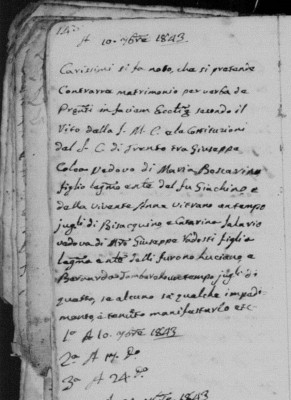 A 10. 9bre 1843
Carissimi si fa noto, che si pretende
Contrarre matrimonio per verba de
Pręnti in faciem secondo il
Rito della S. M. C. e la Constituzioni
del S. C. di Trento tra Giuseppe
Coleo vedovo di Maria Boscarino
figlio legmo e nte del fu Giachino, e
della vivente Anna Vitrano un tempo
jugli di Bisacquino, e Catarina Salario
vedova di Giuseppe Vadosti figlia
legma e nte delli furono Luciano, e
Bernarda Tamburo un tempo jugli di
questo, se alcuno sa qualche impedi
mento, è tenuto manifestarlo etc.
1a A 10. 9bre 1843
2a A 17. do
3a A 24. do
1843